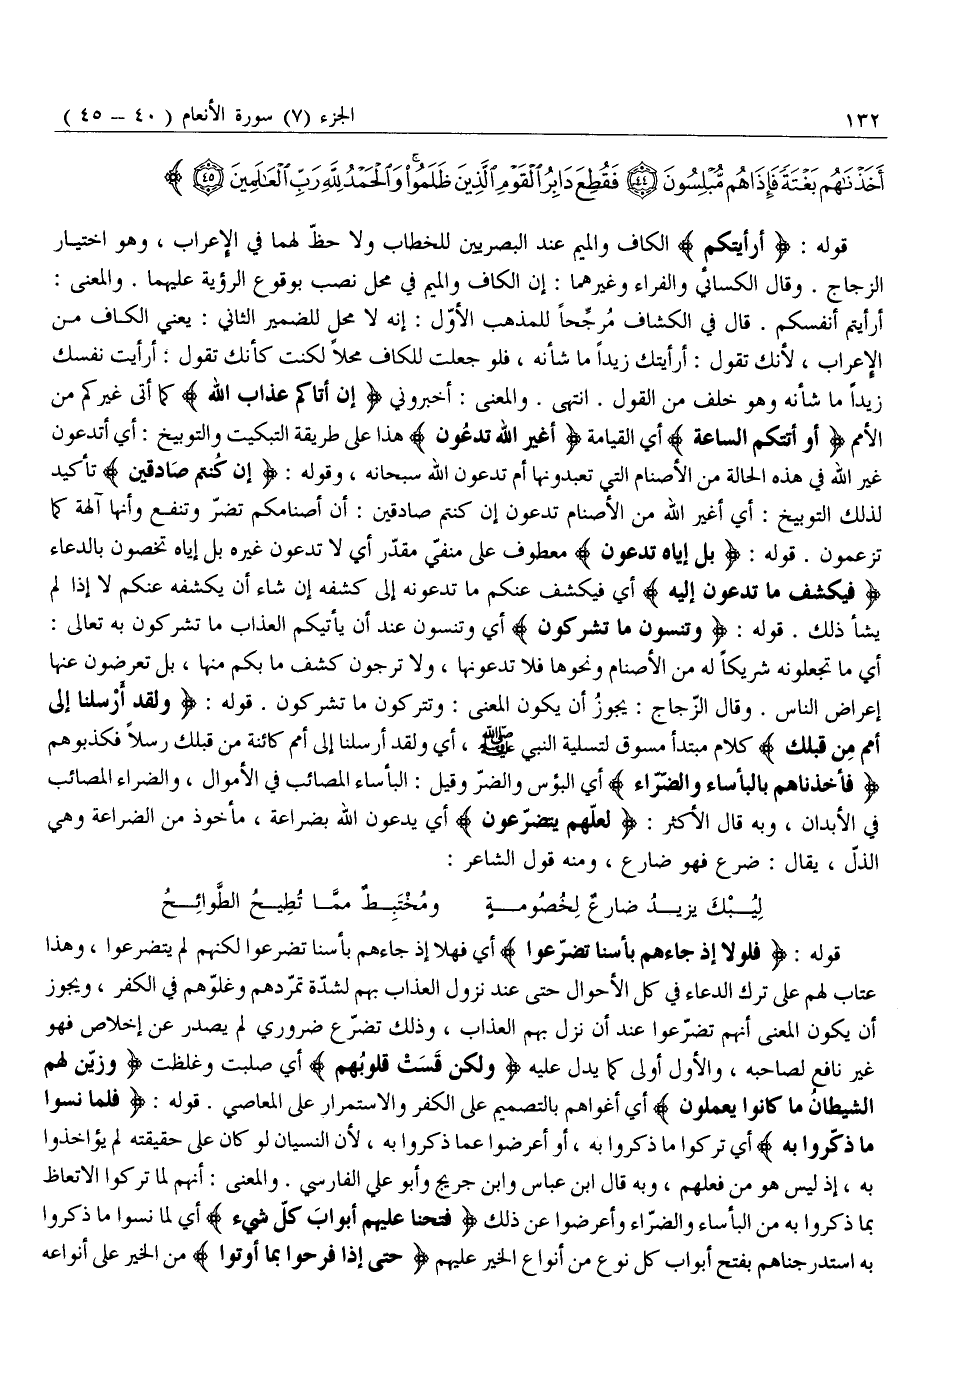 ١٣٢ الجزء (٧) سورة الأنعام ( ٤٠ – ٤٥ )
أَخَذْنَاهُم بَغْتَةً فَإِذَاهُم مُّبْلِسُونَ ٤٤ فَقُطِعَ دَابِرُ الْقَوْمِ الَّذِينَ ظَلَمُواْ وَالْحَمْدُ لِلَّهِ رَبِّ الْعَالَمِينَ ٤٥ ﴾
قوله : ﴿ أرأيتكم ﴾ الكاف والميم عند البصريين للخطاب ولا حظّ لهما في الإعراب ، وهو اختيار
الزجاج . وقال الكسائي والفراء وغيرهما : إن الكاف والميم في محل نصب بوقوع الرؤية عليهما . والمعنى :
أرأيتم أنفسكم . قال في الكشاف مُرجِّحاً للمذهب الأوّل : إنه لا محل للضمير الثاني : يعني الكاف من
الإعراب ، لأنك تقول : أرأيتك زيداً ما شأنه ، فلو جعلت للكاف محلاً لكنت كأنك تقول : أرأيت نفسك
زيداً ما شأنه وهو خلف من القول . انتهى . والمعنى : أخبروني ﴿ إن أتاكم عذاب الله ﴾ كما أتى غيركم من
الأمم ﴿ أو أتتكم الساعة ﴾ أي القيامة ﴿ أغير الله تدعُون ﴾ هذا على طريقة التبكيت والتوبيخ : أي أتدعون
غير الله في هذه الحالة من الأصنام التي تعبدونها أم تدعون الله سبحانه ، وقوله : ﴿ إن كُنتم صَادقين ﴾ تأكيد
لذلك التوبيخ : أي أغير الله من الأصنام تدعون إن كنتم صادقين : أن أصنامكم تضرّ وتنفع وأنها آلهة كما
تزعمون . قوله : ﴿ بل إياه تدعون ﴾ معطوف على منفيّ مقدّر أي لا تدعون غيره بل إياه تخصون بالدعاء
﴿ فيكشف ما تدعون إليه ﴾ أي فيكشف عنكم ما تدعونه إلى كشفه إن شاء أن يكشفه عنكم لا إذا لم
يشأ ذلك . قوله : ﴿ وتنسون ما تشركون ﴾ أي وتنسون عند أن يأتيكم العذاب ما تشركون به تعالى :
أي ما تجعلونه شريكاً له من الأصنام ونحوها فلا تدعونها ، ولا ترجون كشف ما بكم منها ، بل تعرضون عنها
إعراض الناس . وقال الزّجاج : يجوزُ أن يكون المعنى : وتتركون ما تشركون . قوله : ﴿ ولقد أَرْسلنا إلى
أمم مِن قبلك ﴾ كلام مبتدأ مسوق لتسلية النبي ﷺ ، أي ولقد أرسلنا إلى أمم كائنة من قبلك رسلاً فكذبوهم
﴿ فأخذناهم بالبأساء والضرّاء ﴾ أي البؤس والضر وقيل : البأساء المصائب في الأموال ، والضراء المصائب
في الأبدان ، وبه قال الأكثر : ﴿ لعلّهم يتضرّعون ﴾ أي يدعون الله بضراعة ، مأخوذ من الضراعة وهي
الذلّ ، يقال : ضرع فهو ضارع ، ومنه قول الشاعر :
لِيُبْكَ يزيدُ ضارعٌ لِخُصُومةٍ ومُخْتَبِطٌ ممَّا تُطِيحُ الطَّوائِحُ
قوله : ﴿ فلولا إذ جاءهم بأسنا تضرّعوا ﴾ أي فهلا إذ جاءهم بأسنا تضرعوا لكنهم لم يتضرعوا ، وهذا
عتاب لهم على ترك الدعاء في كل الأحوال حتى عند نزول العذاب بهم لشدّة تمرّدهم وغلوّهم في الكفر ، ويجوز
أن يكون المعنى أنهم تضرّعوا عند أن نزل بهم العذاب ، وذلك تضرّع ضروري لم يصدر عن إخلاص فهو
غير نافع لصاحبه ، والأول أولى كما يدل عليه ﴿ ولكن قَسَتْ قلوبُهم ﴾ أي صلبت وغلظت ﴿ وزيّن لهم
الشيطانُ ما كانوا يعملون ﴾ أي أغواهم بالتصميم على الكفر والاستمرار على المعاصي . قوله : ﴿ فلما نسوا
ما ذكّروا به ﴾ أي تركوا ما ذكروا به ، أو أعرضوا عما ذكروا به ، لأن النسيان لو كان على حقيقته لم يؤاخذوا
به ، إذ ليس هو من فعلهم ، وبه قال ابن عباس وابن جريج وأبو علي الفارسي . والمعنى : أنهم لما تركوا الاتعاظ
بما ذكروا به من البأساء والضرّاء وأعرضوا عن ذلك ﴿ فتحنا عليهم أبوابَ كلّ شيء ﴾ أي لما نسوا ما ذكروا
به استدرجناهم بفتح أبواب كل نوع من أنواع الخير عليهم ﴿ حتى إذا فرحوا بما أوتوا ﴾ من الخير على أنواعه